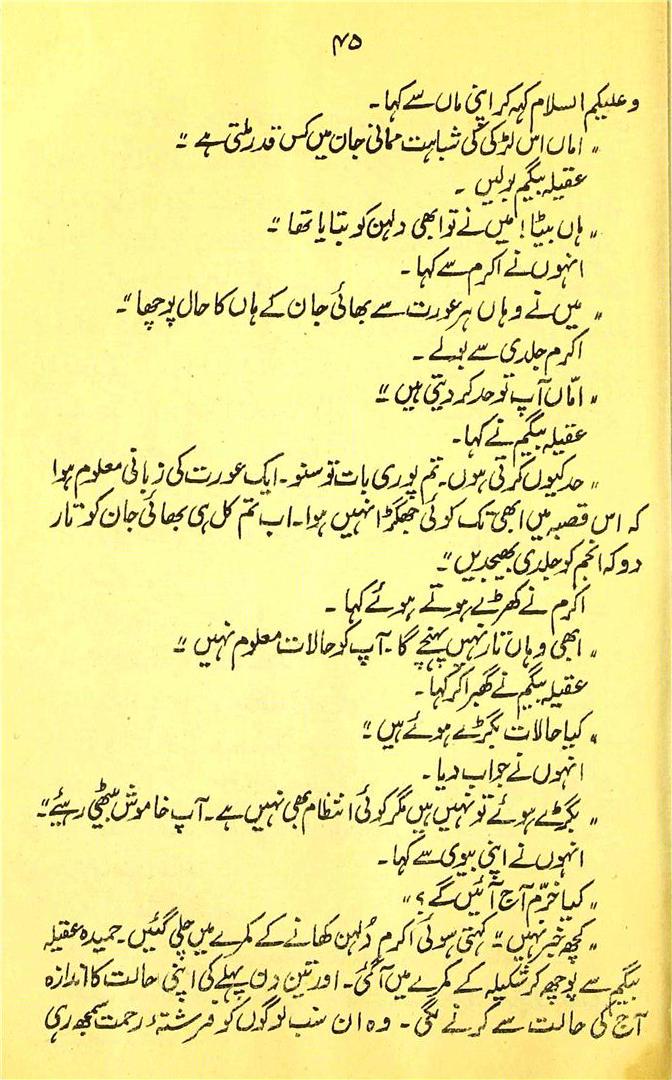 ۴۵
وعلیکم السلام کہہ کر اپنی ماں سے کہا۔
"اماں اس لڑکی کی شباہت ممانی جان میں کس قدر ملتی ہے"
عقیلہ بیگم بولیں۔
"ہاں بیٹا! میں نے تو ابھی دلہن کو بتایا تھا"
انہوں نے اکرم سے کہا۔
"میں نے وہاں ہر عورت سے بھائی جان کے ہاں کا حال پوچھا"۔
اکرم جلدی سے بولے۔
"امّاں آپ تو حد کر دیتی ہیں"
عقیلہ بیگم نے کہا۔
"حد کیوں کرتی ہوں۔ تم پوری بات تو سنو۔ ایک عورت کی زبانی معلوم ہوا
کہ اس قصبہ میں ابھی تک کوئی جھگڑا نہیں ہوا۔ اب تم کل ہی بھائی جان کو تار
دو کہ انجم کو جلدی بھیجدیں"
اکرم نے کھڑے ہوتے ہوئے کہا۔
"ابھی وہاں تار نہیں پہنچے گا۔ آپ کو حالات معلوم نہیں"
عقیلہ بیگم نے گھبرا کر کہا۔
"کیا حالات بگڑے ہوئے ہیں"
انہوں نے جواب دیا۔
"بگڑے ہوئے تو نہیں ہیں مگر کوئی انتظام بھی نہیں ہے۔ آپ خاموش بیٹھی رہیئے"
انہوں نے اپنی بیوی سے کہا۔
"کیا خرّم آج آئیں گے؟"
"کچھ خبر نہیں" کہتی ہوئی اکرم دُلہن کھانے کے کمرے میں چلی گئیں۔ حمیدہ عقیلہ
بیگم سے پوچھ کر شکیلہ کے کمرے میں آ گئی۔ اور تین دن پہلے کی اپنی حالت کا اندازہ
آج کی حالت سے کرنے لگی۔ وہ ان سب لوگوں کو فرشتۂ رحمت سمجھ رہی